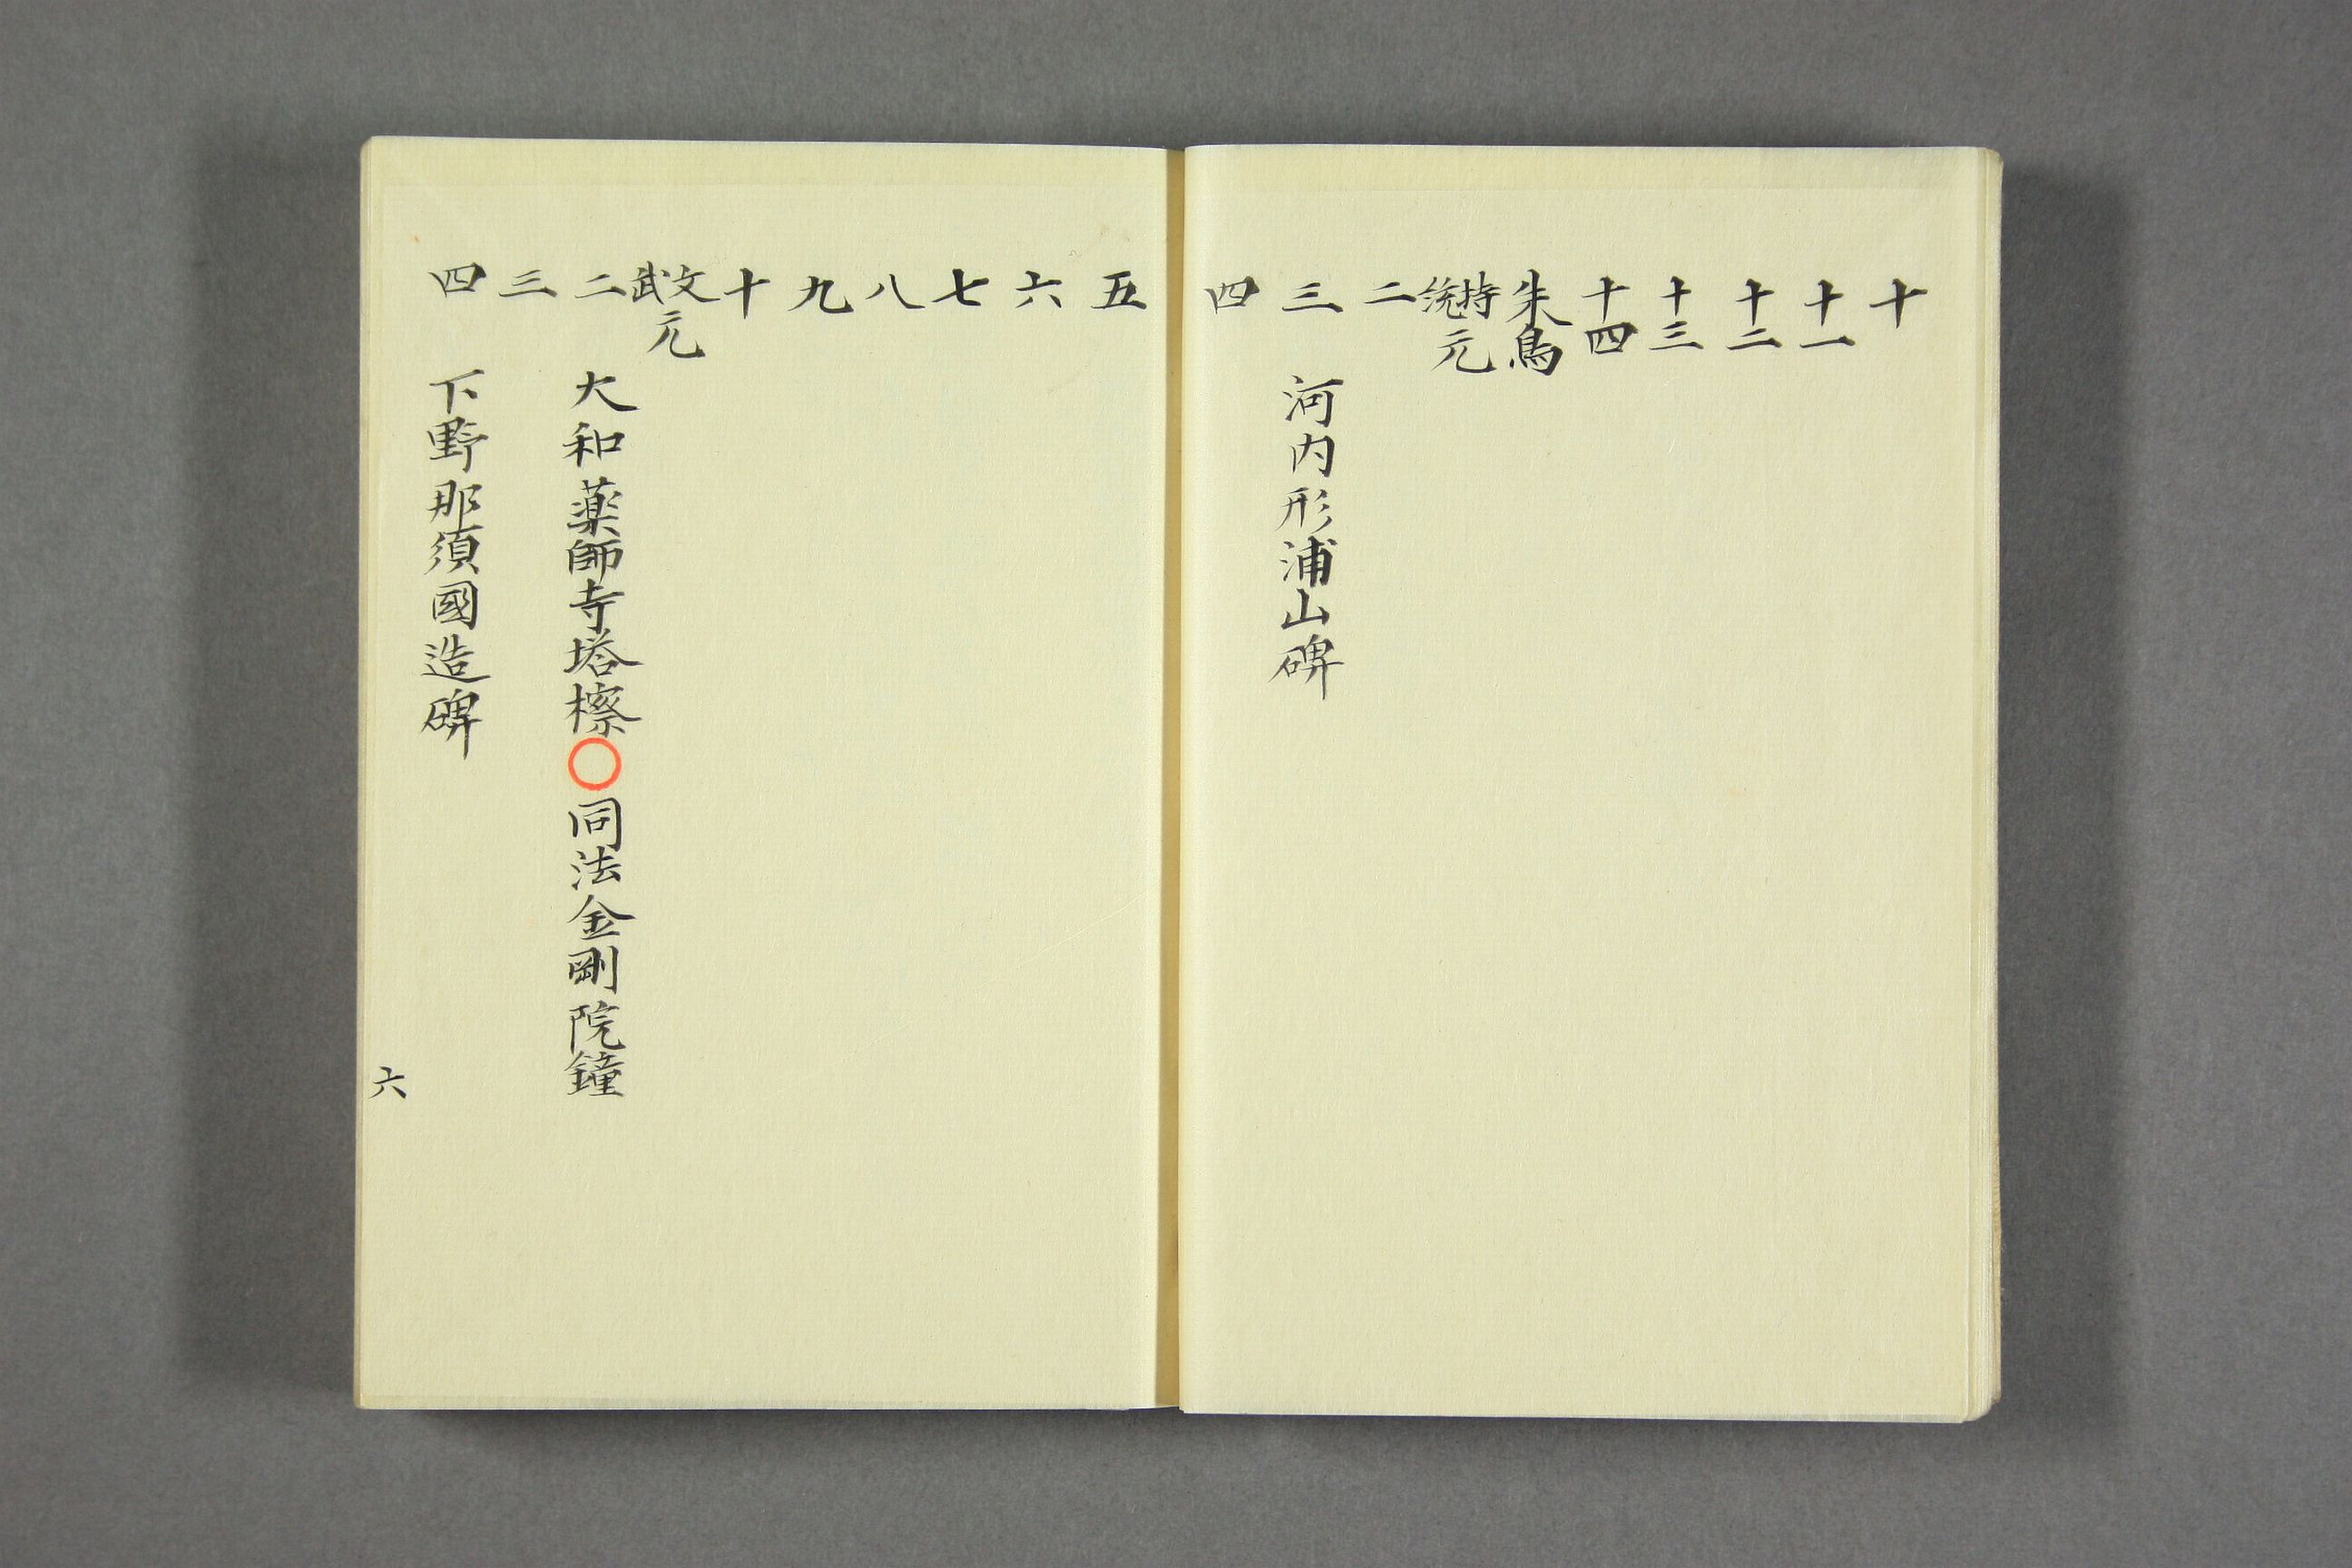 十
十一
十二
十三
十四
朱鳥
持統元
二
三 河内形浦山碑
四
五
六
七
八
九
十
文武元
二 大和薬師寺塔檫〇同法金剛院鐘
三
四 下野那須國造碑
六